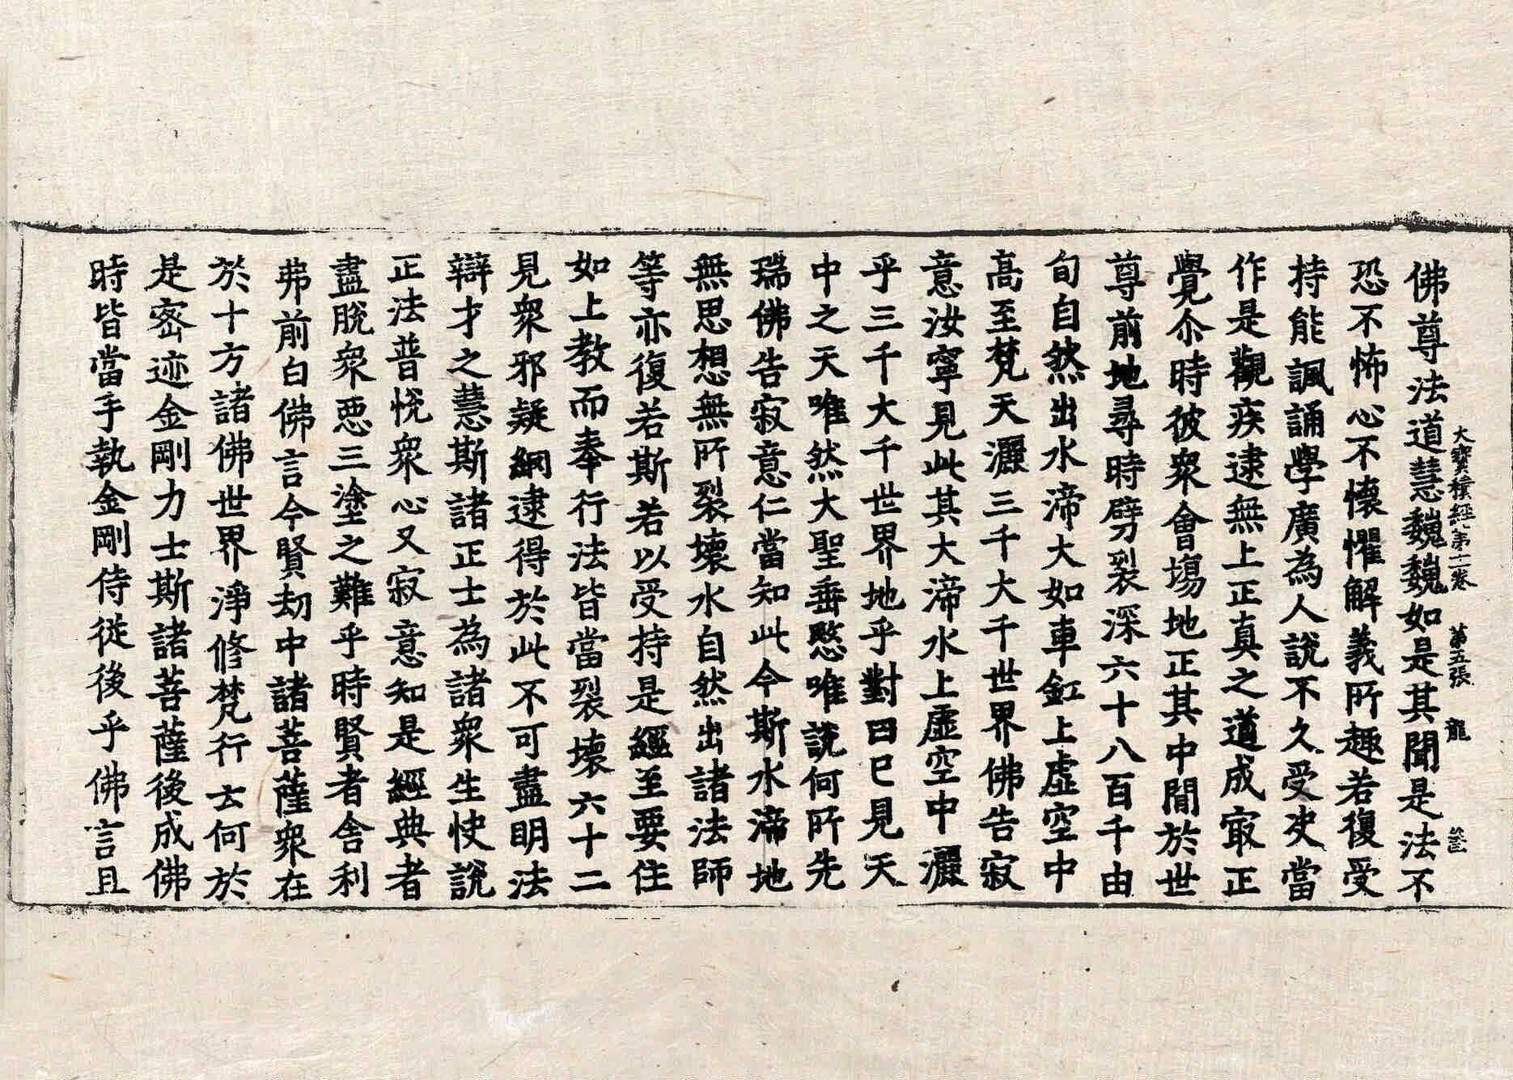 大寶積經第十二卷　第五張　龍
佛尊法道慧巍巍如是其聞是法不
恐不怖心不懷懼解義所趣若復受
持能諷誦學廣為人說不久受決當
作是觀疾逮無上正真之道成㝡正
覺尒時彼衆會場地正其中間於世
尊前地尋時劈裂深六十八百千由
旬自然出水渧大如車釭上虛空中
高至梵天灑三千大千世界佛告寂
意汝寧見此其大渧水上虛空中灑
乎三千大千世界地乎對曰已見天
中之天唯然大聖垂愍唯說何所先
瑞佛告寂意仁當知此今斯水渧地
無思想無所裂壞水自然出諸法師
等亦復若斯若以受持是經至要住
如上教而奉行法皆當裂壞六十二
見衆邪疑網逮得於此不可盡明法
辯才之慧斯諸正士為諸衆生快說
正法普悅衆心又寂意知是經典者
盡脫衆惡三塗之難乎時賢者舍利
弗前白佛言今賢劫中諸菩薩衆在
於十方諸佛世界淨修梵行云何於
是密迹金剛力士斯諸菩薩後成佛
時皆當手執金剛侍從後乎佛言且